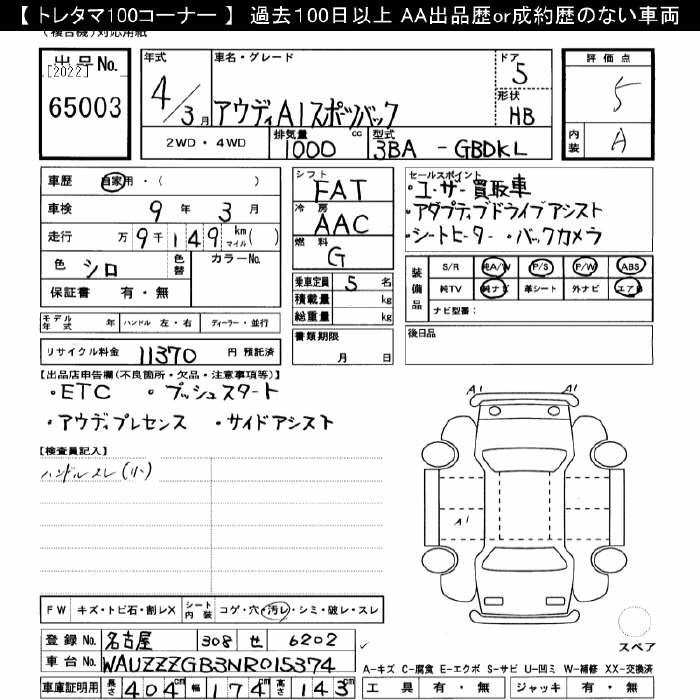 【 トレタマ100コーナー 】 過去100日以上 AA出品歴or成約歴のない車両
(複合機)対応用紙
出品No.
[2022]
65003
年式
4/3月
車名・グレード
アウディA1スポーツバック
ドア
5
形状
HB
2WD・4WD
排気量
1000 cc
型式
3BA - GBDKL
評価点
5
内装
A
車歴 自家用・( )
車検 9年 3月
走行 万9千149 km マイル( )
色 シロ 色替 カラーNo.
保証書 有・無
シフト
FAT
冷房
AAC
燃料
G
乗車定員 5名
積載量 kg
総重量 kg
セールスポイント
・ユーザー買取車
・アダプティブドライブアシスト
・シートヒーター ・バックカメラ
装備品
S/R 純A/W P/S P/W ABS
純TV 純ナビ 革シート 外ナビ エアB
ナビ型番:
モデル年式 年 ハンドル 左・右 ディーラー・並行
リサイクル料金 11370 円 預託済
書類期限
月 日
後日品
【出品店申告欄(不良箇所・欠品・注意事項等)】
・ETC ・プッシュスタート
・アウディプレセンス ・サイドアシスト
【検査員記入】
ハンドルスレ(小)
A1 A1
A1
スペア
FW キズ・トビ石・割レX シート内装 コゲ・穴・汚レ・シミ・破レ・スレ
登録No. 名古屋 308 せ 6202
車台No. WAUZZZGB3NR015374
車庫証明用 長さ 404cm 幅 174cm 高さ 143cm
A-キズ C-腐食 E-エクボ S-サビ U-凹ミ W-補修 XX-交換済
工具 有・無 ジャッキ 有・無